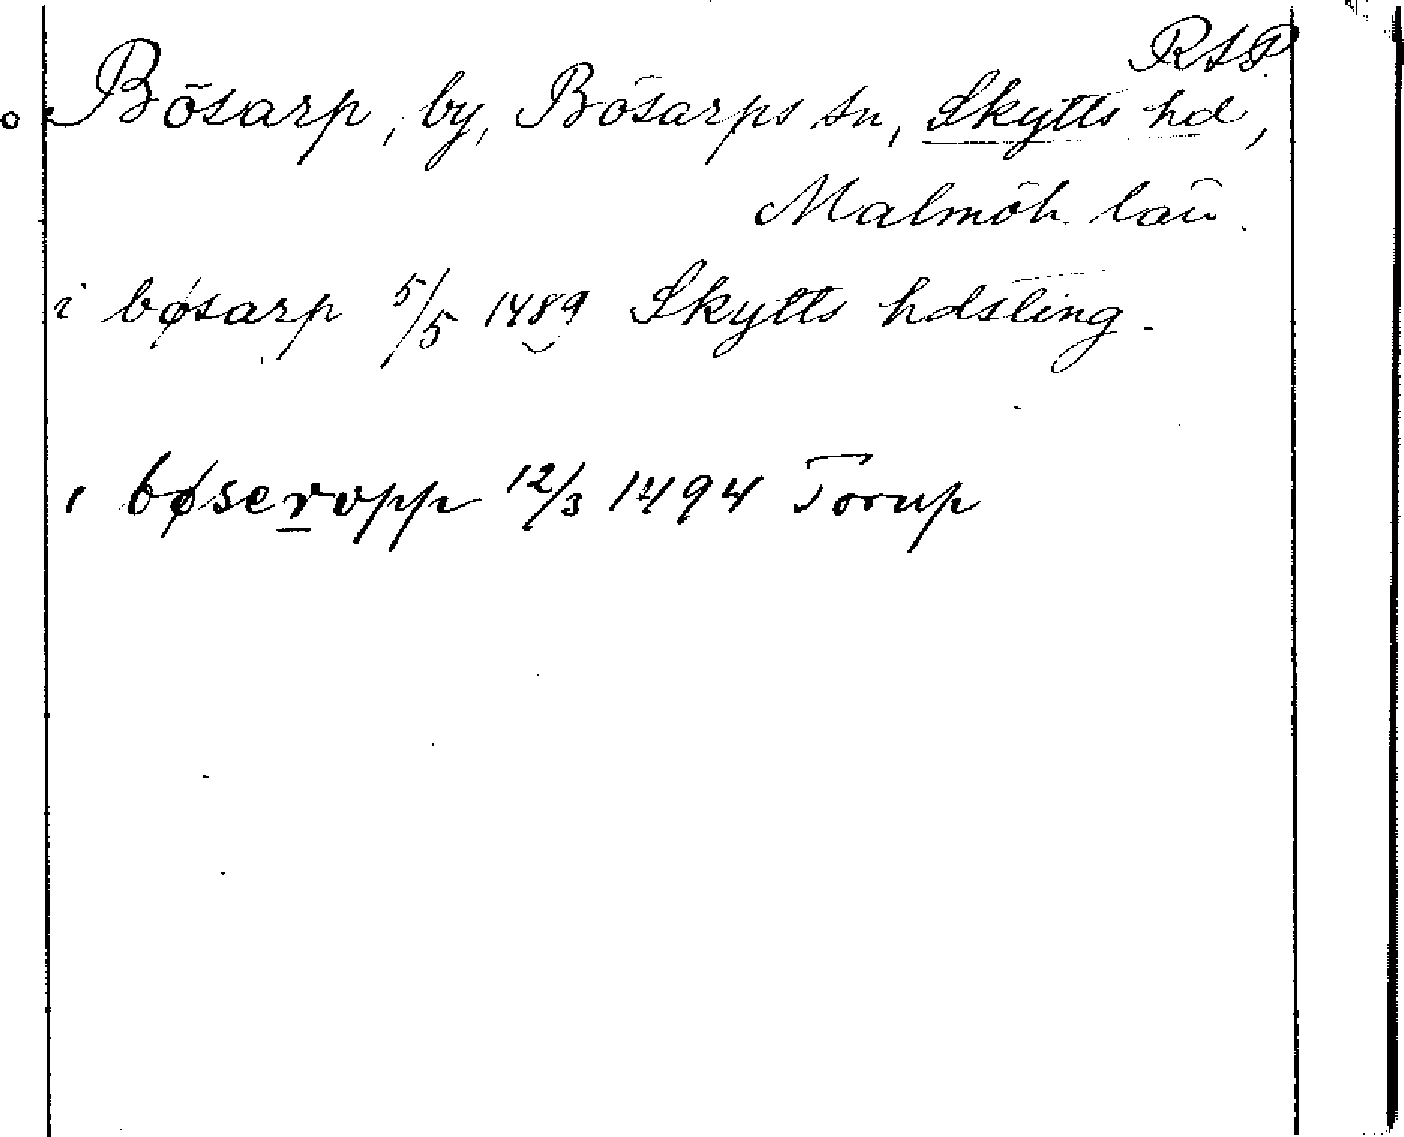 RAP
Bösarp, by, Bösarps sn, Skytts hd,
Malmöh. län.
i bøsarp 5/5 1489 Skytts hdsting.
i bøseropp 12/3 1494 Torup